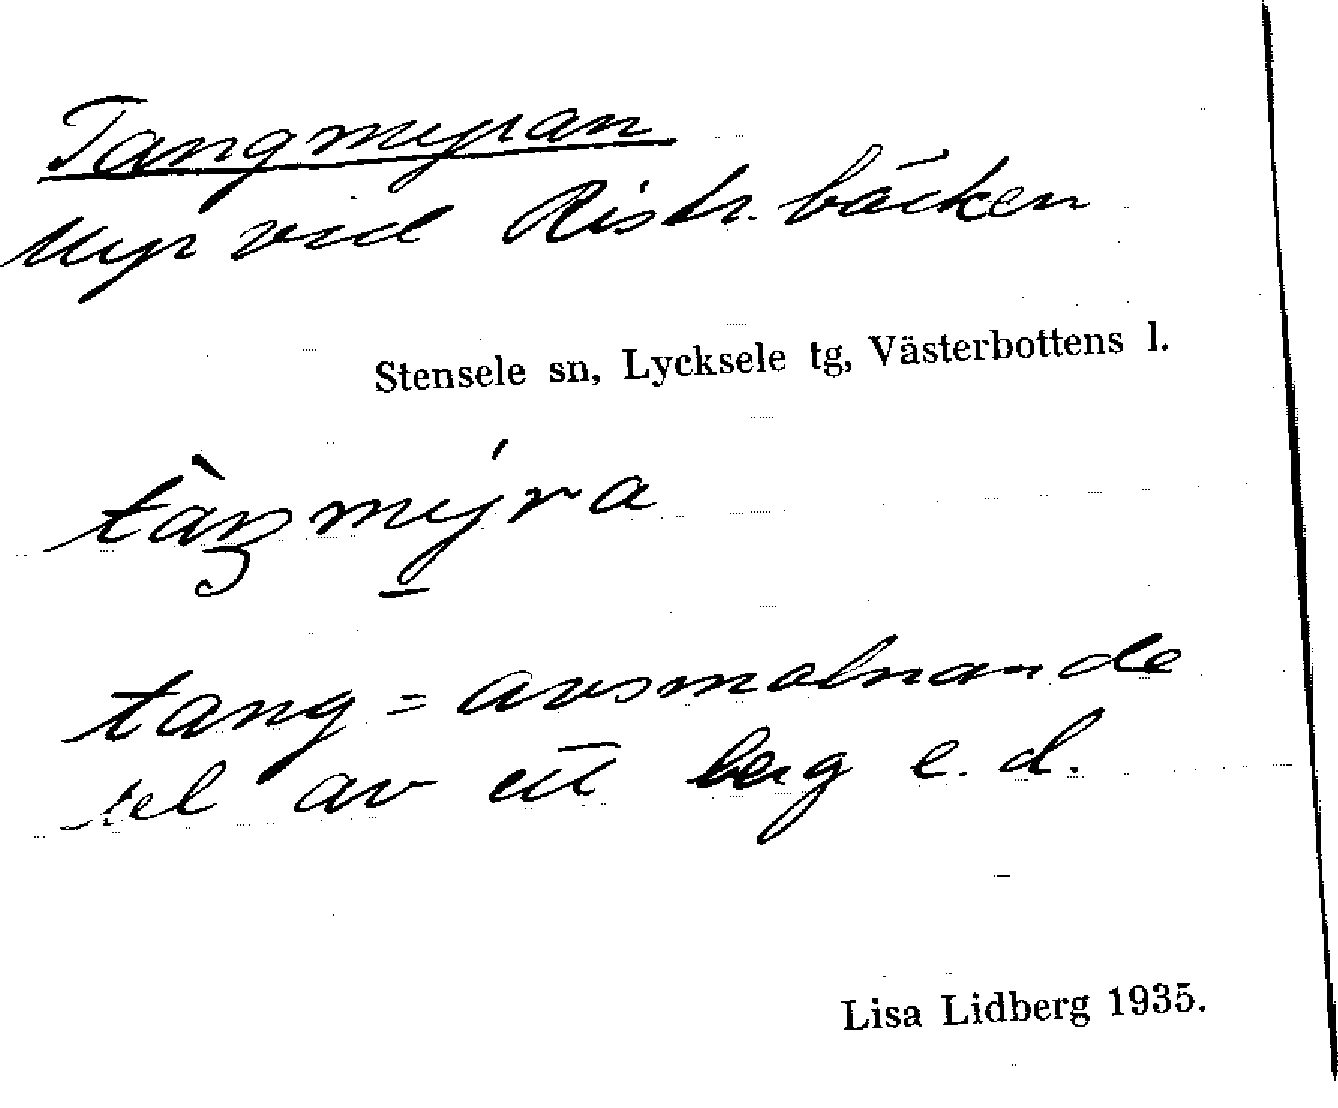 Tangmyran
Myr vid Ristr.bäcken
Stensele sn, Lycksele tg, Västerbottens l.
tàŋmý̱ra
tang = avsmalnande
del av ett berg e. d.
Lisa Lidberg 1935.